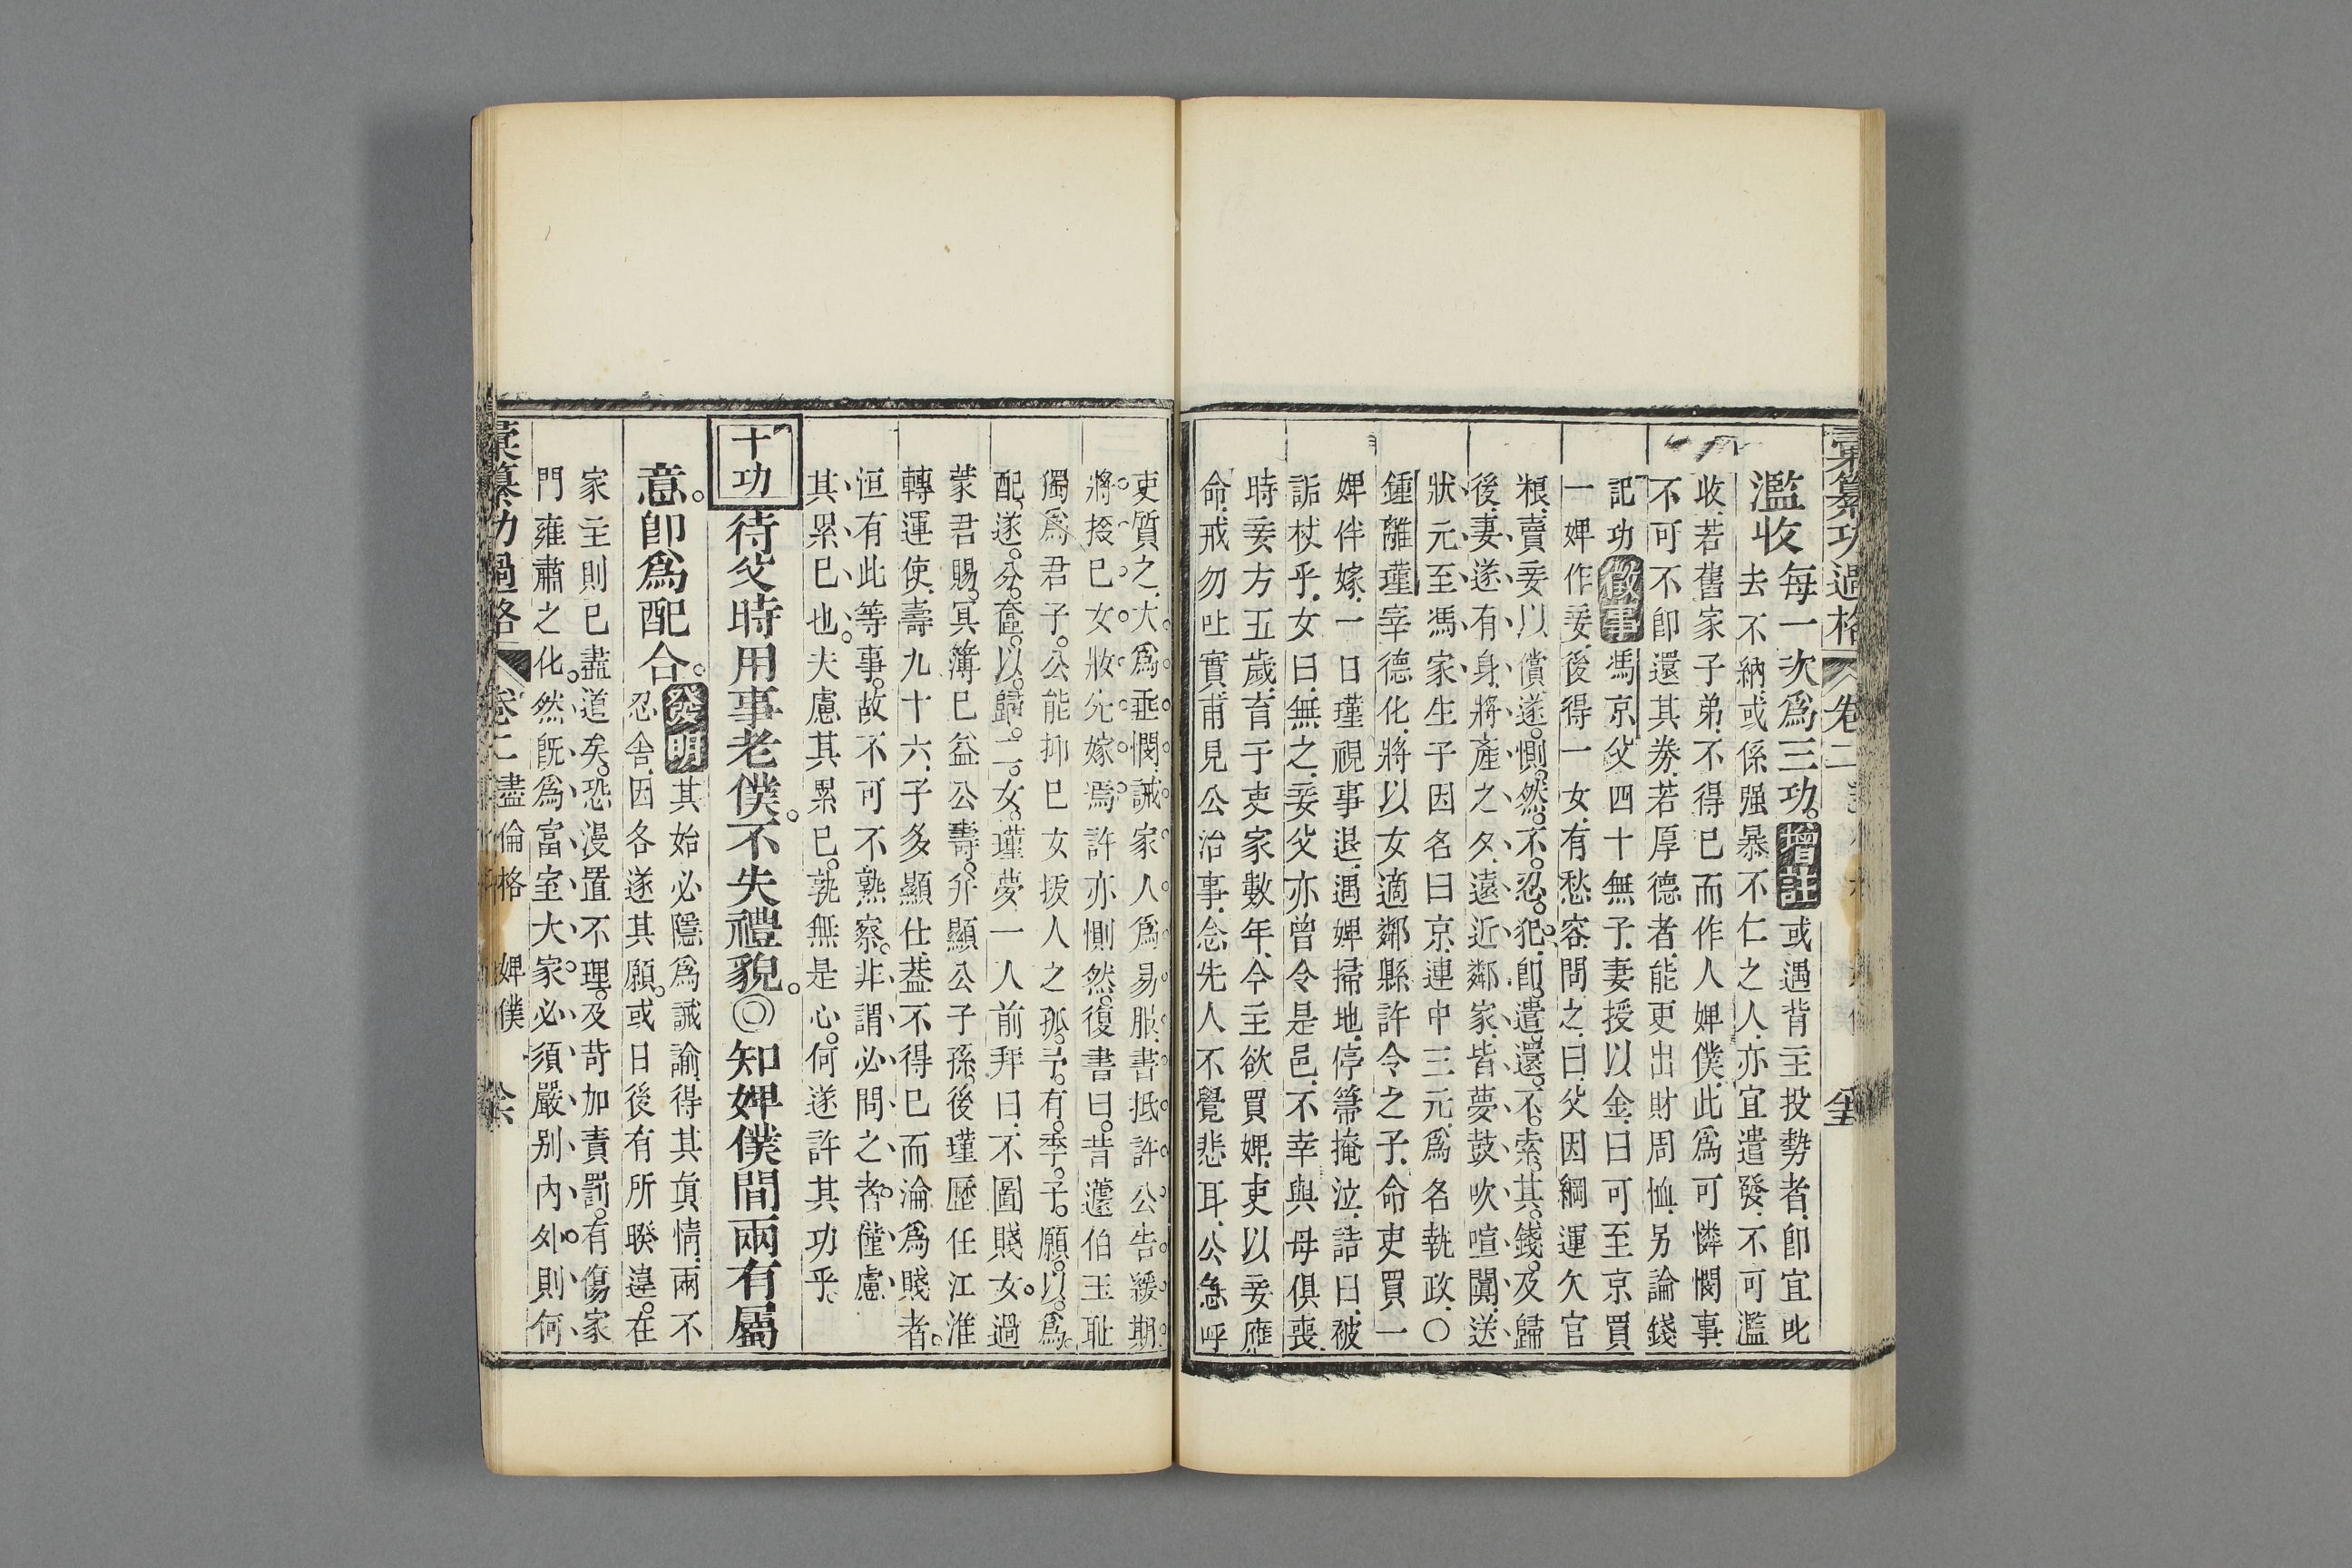 彙纂功過格 卷二
濫收每一次爲三功。增註或遇背主投勢者、卽宜叱
去不納、或係强暴不仁之人、亦宜遣發、不可濫
收、若舊家子弟、不得已而作人婢僕、此爲可憐憫事、
不可不卽還其券、若厚德者、能更出財周恤、另論錢
記功徵事馮京父四十無子、妻授以金、曰可至京買
一婢作妾、後得一女、有愁容、問之、曰、父因綱運欠官
粮、賣妾以償、遂。惻。然。不。忍。犯。卽。遣。還。不。索。其。錢。及歸
後、妻遂有身、將產之夕、遠近鄰家、皆夢鼓吹喧闐、送
狀元至馮家生子因名曰京、連中三元、爲名執政、○
鍾離瑾宰德化、將以女適鄰縣許令之子、命吏買一
婢伴嫁、一日瑾視事退、遇婢掃地、停箒掩泣、詰曰、被
詬杖乎、女曰、無之、妾父亦曾令是邑、不幸與母俱喪、
時妾方五歲、育于吏家數年、今主欲買婢、吏以妾應
命、戒勿吐實、甫見公治事、念先人不覺悲耳、公急呼
吏質之、大爲垂憫、誡家人爲易服、書抵許公告緩期
將接己女妝先嫁焉、許亦惻然、復書曰、昔蘧伯玉耻
獨爲君子。公能抑己女拔人之孤。予。有。季。子。願。以。爲。
配、遂。分。奩。以。歸。二。女。瑾夢一人前拜曰、不圖賤女。過
蒙君賜。冥簿已益公壽。幷顯公子孫、後瑾歷任江淮
轉運使、壽九十六、子多顯仕、葢不得已而淪爲賤者。
洹有此等事。故不可不熟察。非謂必問之者。僅慮
其累已也。夫慮其累已。孰無是心。何遂許其功乎、
十功待父時用事老僕。不失禮貌。◎知婢僕間兩有屬
意。卽爲配合。發明其始必隱、爲誡諭、得其眞情、兩不
忍舍、因各遂其願。或日後有所暌違。在
家主則已盡道矣。恐漫置不理。及苛加責罰。有傷家
門雍肅之化。然旣爲富室大家。必須嚴别內外。則何
彙纂功過格 卷二 盡倫格 婢僕